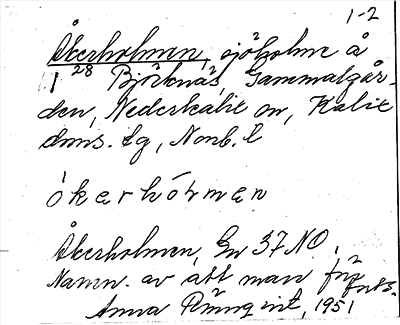 1-2
Åkerholmen, sjöholme å
1 28 Björknäs, Gammalgår-
den, Nederkalix sn, Kalix
doms. tg, Norrb. l
ókerhólmen
Åkerholmen, Gn 37 NO,
Namn. av att man för
forts.
Anna Rönnqvist, 1951